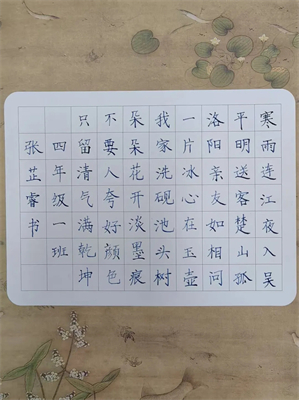 寒雨连江夜入吴
平明送客楚山孤
洛阳亲友如相问
一片冰心在玉壶
我家洗砚池头树
朵朵花开淡墨痕
不要人夸好颜色
只留清气满乾坤
四年级一班
张芷睿书